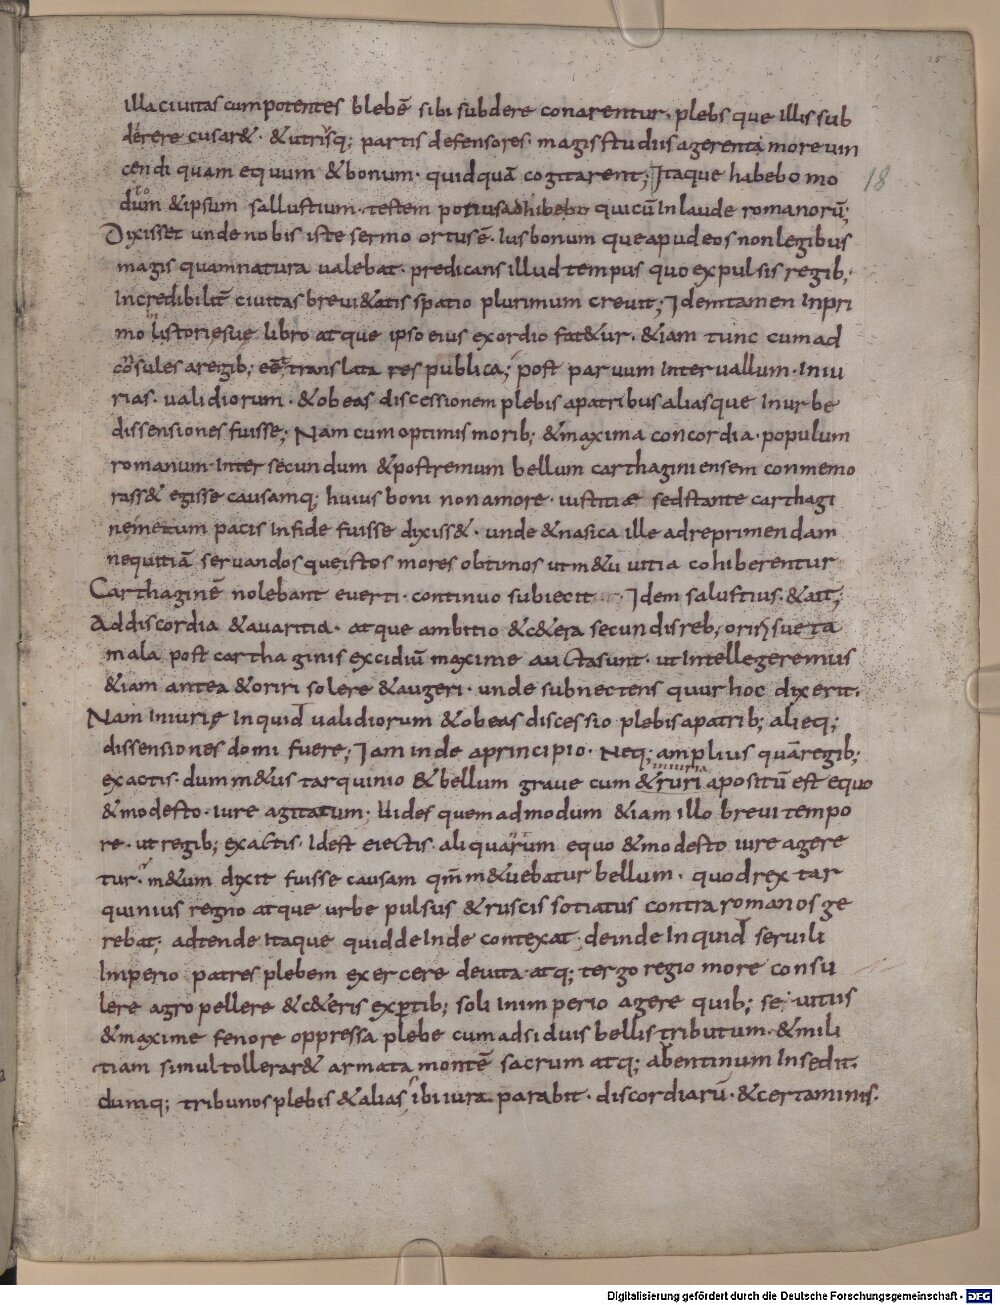 illa ciuitas cum potentes blebē sibi subdere conarentur· plebsque illis sub
derere cusar&· &utrisq; partis defensores· magis studiis agerent amore uin
cendi quam equum &bonum· quidquā cogitarent; Itaque habebo mo
dum &ipsum sallustium· testem potius adhibebo quicū In laude romanorū;
Dixisset unde nobis iste sermo ortusē· Ius bonumque apud eos non legibus
magis quam natura ualebat· predicans illud tempus quo expulsis regib;
Incredibilit̄ ciuitas breui &atis spatio plurimum creuit; Idem tamen Inpri
mo historiesue libro atque ipso eius exordio fat&ur· &iam tunc cum ad
cōsules a regib; translata res publica; post paruum Interuallum· Iniu
rias· ualidiorum· &ob eas discessionem plebis a patribus aliasque In urbe
dissensiones fuisse; Nam cum optimis morib; &maxima concordia· populum
romanum· Inter secundum &postremum bellum carthaginiensem conmemo
rass& egisse causamq; huius boni non amore· iustitiae sed stante carthagi
ne metum pacis Infide fuisse dixiss&· unde &nasica ille ad reprimendam
nequitiā seruandosque istos mores obtimos ut m&u uitia cohiberentur
Carthaginē nolebant euerti· continuo subiecit Idem salustius· &ait;
Ad discordia &auaritia· atque ambitio &c&era secundis reb; sueta
mala post carthaginis excidiū maxime aucta sunt· ut Intellegeremus
&iam antea &oriri solere &augeri· unde subnectens quur hoc dixerit·
Nam Iniurię Inquid ualidiorum &ob eas discessio plebis a patrib; alieq;
dissensiones domi fuere; Iam inde a principio· Neq; amplius quā regib;
iniuria
exactis· dum m&us tarquinio &bellum graue cum &ruria positū est equo
&modesto· iure agitatum· Uides quem admodum &iam illo breui tempo
re· ut regib; exactis· Idest eiectis· aliquarum equo &modesto iure agere
tur· m&um dixit fuisse causam qm̄ m&uebatur bellum· quod rex tar
quinius regno atque urbe pulsus &ruscis sotiatus contra romanos ge
rebat; adtende Itaque quid deInde contexat; deinde Inquid seruili
Imperio patres plebem exercere de uita· atq; tergo regio more consu
lere agro pellere &c&eris exptib; soli In imperio agere quib; seuitus
&maxime fenore oppressa plebe cum adsiduis bellis tributum· &mili
tiam simul tollerar& armata montē sacrum atq; abentinum Insedit·
dumq; tribunos plebis &alias ibi iura parabit· discordiarū· &certaminis·
18
Digitalisierung gefördert durch die Deutsche Forschungsgemeinschaft - DFG